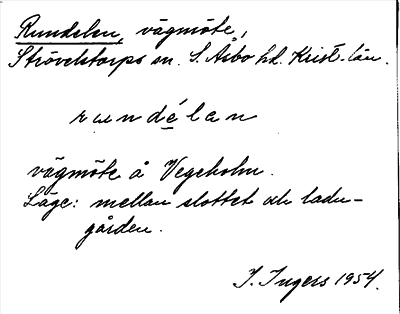 Rundelen, vägmöte,
Strövelstorps sn. S. Åsbo hd. Krist-län.
rundélan
vägmöte å Vegeholm.
Läge: mellan slottet och ladu-
gården.
I. Ingers 1954.